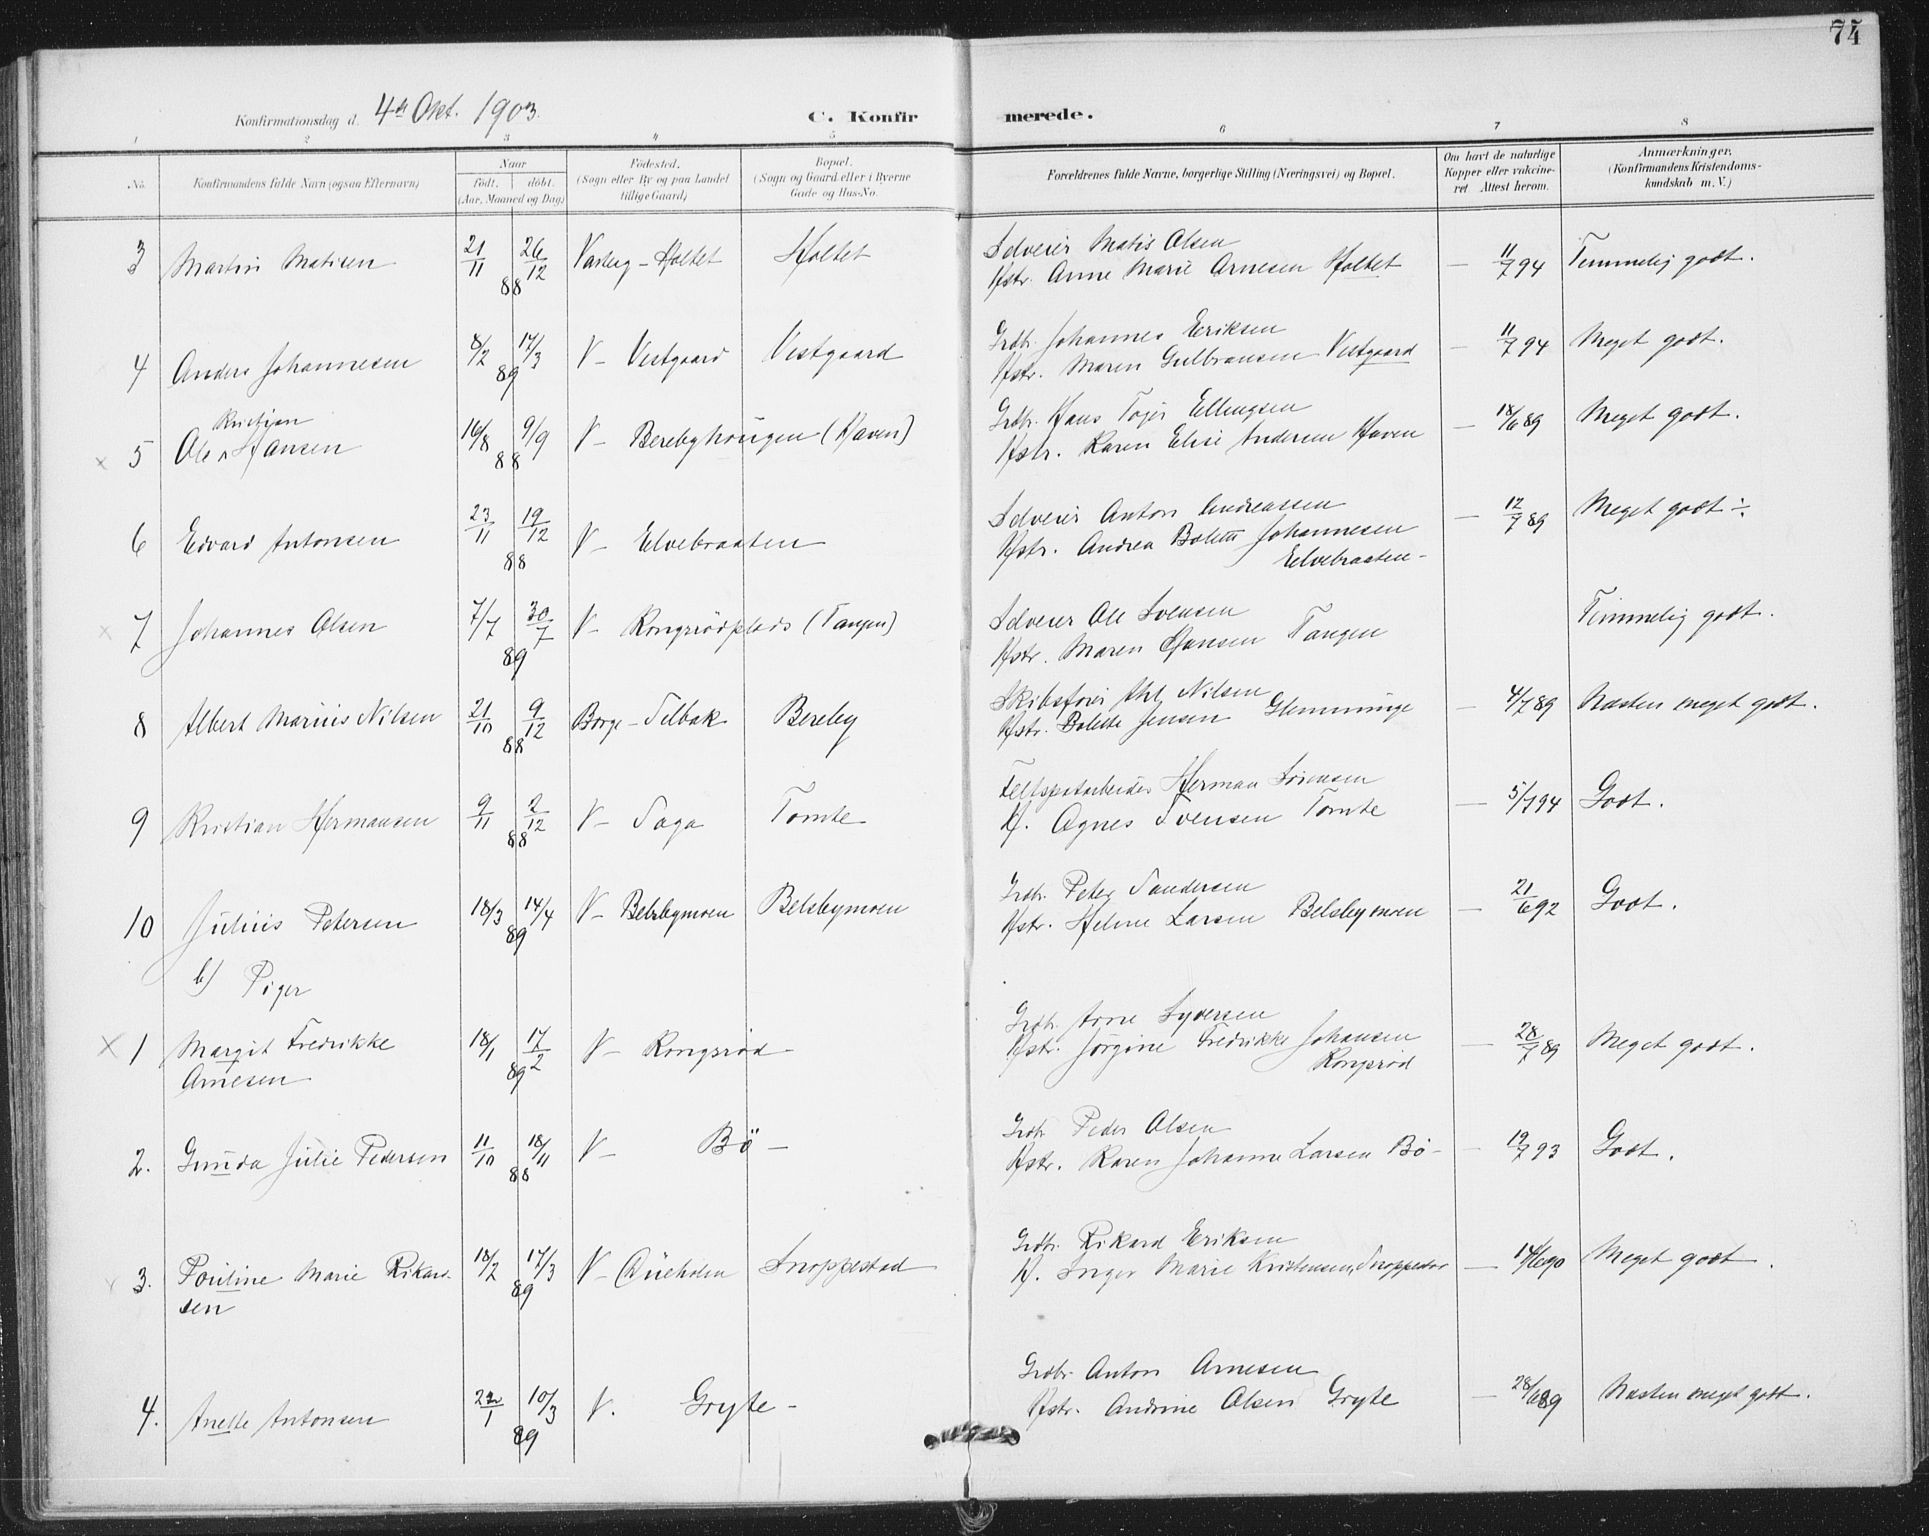 74
Konfirmationsdag d. 4de Okt. 1903. C. Konfirmerede.
1 2 3 4 5 6 7 8
No. Konfirmandens fulde Navn (ogsaa Efternavn) Naar født. døbt. (Aar, Maaned og Dag) Fødested. (Sogn eller By og paa Landet tillige Gaard) Bopæl. (Sogn og Gaard eller i Byerne Gade og Hus-No. Forældrenes fulde Navne, borgerlige Stilling (Næringsvei) og Bopæl. Om havt de naturlige Kopper eller vaccineret Attest herom. Anmærkninger. (Konfirmandens Kristendomskundskab m. V.)
3 Martin Matisen 21/11 26/12 88 Varteig - Holtet Holtet Selveier Matis Olsen
Hstr. Anne Marie Arnesen Holtet - 11/7 94 Temmelig godt.
4 Anders Johannesen 8/2 17/3 89 V - Vestgaard Vestgaard Grdbr. Johannes Eriksen
Hstr. Maren Gulbransen Vestgaard - 11/7 94 Meget godt.
5 Ole Kristian Hansen 16/8 9/9 88 V - Berebyhougen (Haven) Grdbr. Hans Ellingsen
Hstr. Karen Elise Andersen Haven - 18/6 89 Meget godt.
6 Edvard Antonsen 23/11 19/12 88 V - Elvebraaten Selveier Anton Andreassen
Hstr. Andrea Bolette Johannesen
Elvebraaten - - 12/7 89 Meget godt ÷.
7 Johannes Olsen 7/7 30/7 89 V - Rongsrødplads (Tangen) Selveier Ole Svensen
Hstr. Maren Hansen Tangen Temmelig godt.
8 Albert Marius Nilsen 21/10 9/12 88 Borge - Selbak Bereby Skibsfører Nilsen
Hstr. Bolette Jensen Glemminge - 4/7 89 Næsten meget godt.
9 Kristian Hermansen 9/11 2/12 88 V - Saga Tomte Feltspatarbeider Herman Sørensen
H. Agnes Svensen Tomte - 5/7 94 Godt.
10 Julius Petersen 18/3 14/4 89 V - Belsbymoen Belsbymoen Grdbr. Peter Sandersen
Hstr. Helene Larsen Belsbymoen - 21/6 92 Godt.
b) Piger
1 Margit Fredrikke
Arnesen 18/1 17/2 89 V - Rongsrød - Grdbr. Arne Syversen
Hstr. Jørgine Fredrikke Johansen
Rongsrød - 28/7 89 Meget godt.
2. Gunda Julie Pedersen 11/10 18/11 88 V - Bö - Grdbr. Peder Olsen
Hstr. Karen Johanne Larsen Bö - - 19/7 93 Godt.
3. Pouline Marie Rikardsen 18/2 17/3 89 V - Snoppestad Grdbr. Rikard Eriksen
H. Inger Marie Kristensen, Snoppestad - 14/6 90 Meget godt.
4. Anette Antonsen 22/1 10/3 89 V. Gryte - Grdbr. Anton Arnesen
Hstr. Andrine Olsen Gryte - 28/6 89 Næsten meget godt.